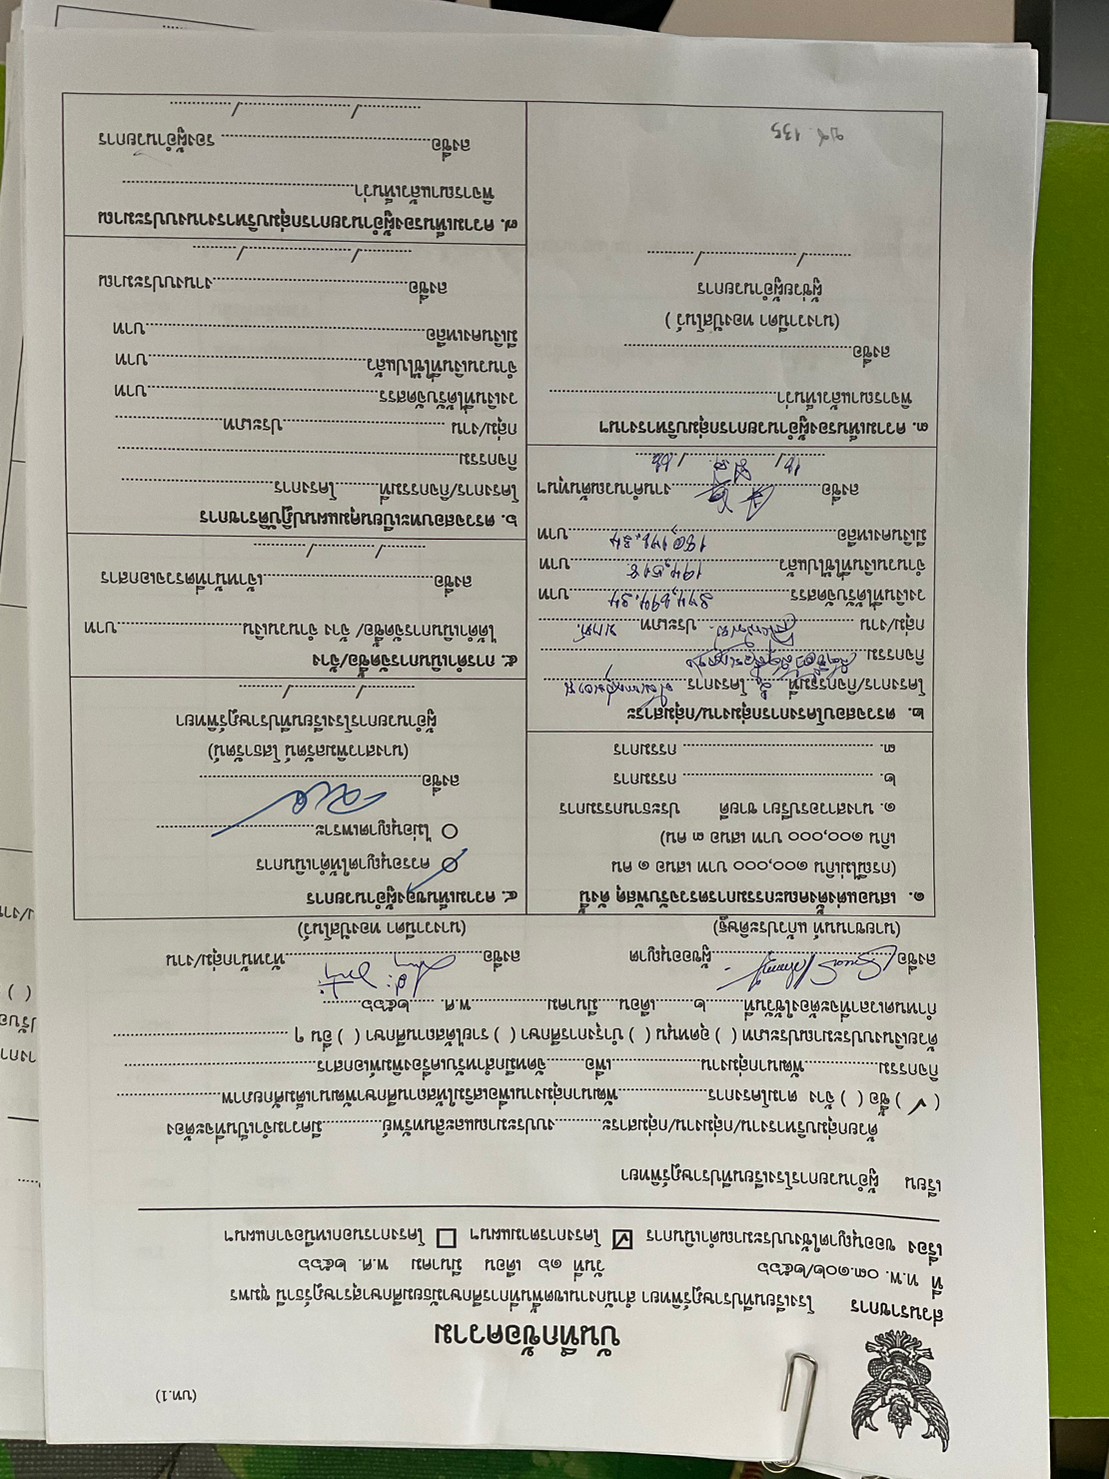 (บท.1)
บันทึกข้อความ
ส่วนราชการ โรงเรียนทีปราษฎร์พิทยา สำนักงานเขตพื้นที่การศึกษามัธยมศึกษาสุราษฎร์ธานี ชุมพร
ที่ ท.พ. ๐๓.๑๐๒/๒๕๖๖ วันที่ ๑๖ เดือน มีนาคม พ.ศ. ๒๕๖๖
เรื่อง ขออนุญาตใช้งบประมาณดำเนินการ ☑ โครงการตามแผนฯ ☐ โครงการนอกเหนือจากแผนฯ
เรียน ผู้อำนวยการโรงเรียนทีปราษฎร์พิทยา
ด้วยกลุ่มบริหารงาน/กลุ่มงาน/กลุ่มสาระ..........งบประมาณและสินทรัพย์..........มีความจำเป็นที่จะต้อง
( ✓ ) ซื้อ ( ) จ้าง ตามโครงการ..........พัฒนากลุ่มงานเพื่อเสริมให้สถานศึกษาพัฒนาเต็มศักยภาพ..........
กิจกรรม..........พัฒนากลุ่มงาน..........เพื่อ..........จัดหมึกสำหรับเครื่องพิมพ์เอกสาร..........
ด้วยเงินงบประมาณประเภท ( ) อุดหนุน ( ) บำรุงการศึกษา ( ) รายได้สถานศึกษา ( ) อื่น ๆ ..........
กำหนดเวลาที่จะต้องใช้วันที่..........๒..........เดือน..........มีนาคม..........พ.ศ. ..........๒๕๖๖..........
ลงชื่อ..........ผู้ขออนุญาต ลงชื่อ..........หัวหน้ากลุ่ม/งาน
(นายชานนท์ แก้วประดิษฐ์) (นางวานิดา ทองปัสโนว์)
๑. เสนอแต่งตั้งคณะกรรมการตรวจรับพัสดุ ดังนี้
(กรณีไม่เกิน ๑๐๐,๐๐๐ บาท เสนอ ๑ คน
เกิน ๑๐๐,๐๐๐ บาท เสนอ ๓ คน)
๑. นางสาวอรปรียา ชายดี ประธานกรรมการ
๒. .......... กรรมการ
๓. .......... กรรมการ
๒. ตรวจสอบโครงการกลุ่มงาน/กลุ่มสาระ
โครงการ/กิจกรรมที่..........โครงการ..........
กิจกรรม..........
กลุ่ม/งาน ..........ประเภท..........
วงเงินที่ได้รับจัดสรร..........374,694.34..........บาท
จำนวนเงินที่ใช้ไปแล้ว..........194,518..........บาท
มีเงินคงเหลือ..........180,176.34..........บาท
ลงชื่อ..........งานคำนวณต้นทุนฯ
16 / มี.ค. / 66
๓. ความเห็นรองผู้อำนวยการกลุ่มบริหารงานฯ
พิจารณาแล้วเห็นว่า..........
ลงชื่อ..........
(นางวานิดา ทองปัสโนว์ )
ผู้ช่วยผู้อำนวยการ
........../........../..........
135
๔. ความเห็นของผู้อำนวยการ
○ ควรอนุญาตให้ดำเนินการ
○ ไม่อนุญาตเพราะ..........
ลงชื่อ..........
(นางสาวพิมลรัตน์ โสธารัตน์)
ผู้อำนวยการโรงเรียนทีปราษฎร์พิทยา
........../........../..........
๕. การดำเนินการจัดซื้อ/จ้าง
ได้ดำเนินการจัดซื้อ/ จ้าง จำนวนเงิน..........บาท
ลงชื่อ..........เจ้าหน้าที่ตรวจเอกสาร
........../........../..........
๖. ตรวจสอบทะเบียนคุมแผนปฏิบัติราชการ
โครงการ/กิจกรรมที่..........โครงการ..........
กิจกรรม..........
กลุ่ม/งาน ..........ประเภท..........
วงเงินที่ได้รับจัดสรร..........บาท
จำนวนเงินที่ใช้ไปแล้ว..........บาท
มีเงินคงเหลือ..........บาท
ลงชื่อ..........งานงบประมาณ
........../........../..........
๗. ความเห็นรองผู้อำนวยการกลุ่มบริหารงานงบประมาณ
พิจารณาแล้วเห็นว่า..........
ลงชื่อ.......... รองผู้อำนวยการ
........../........../..........